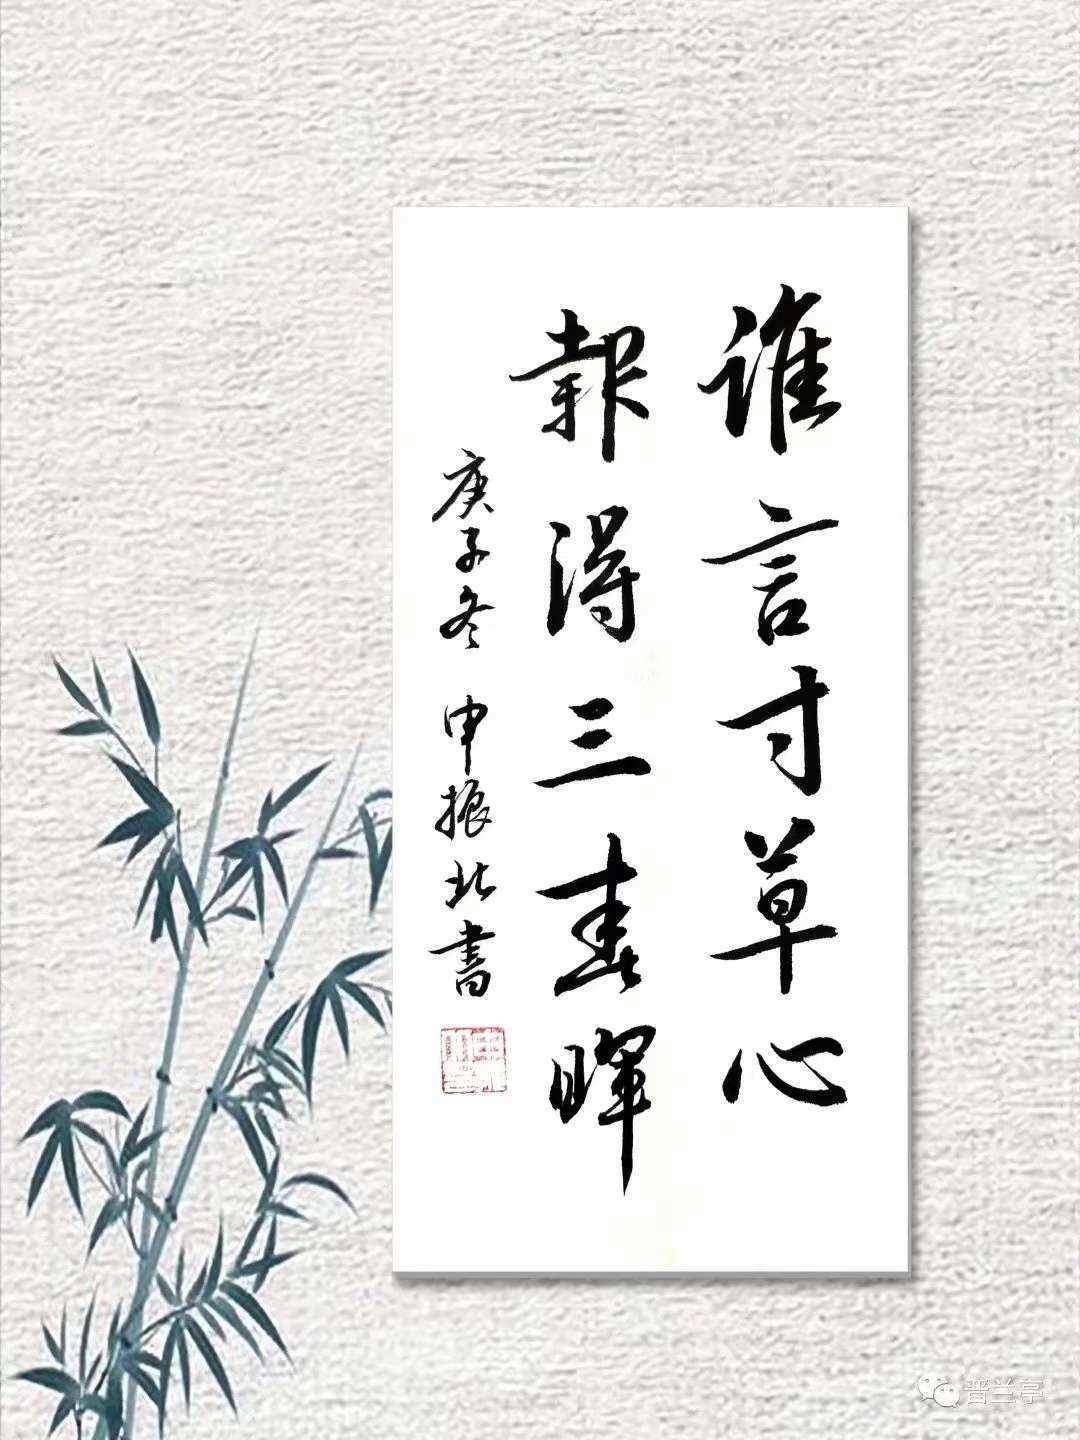 谁言寸草心
報得三春暉
庚子冬 申振北書
晋兰亭